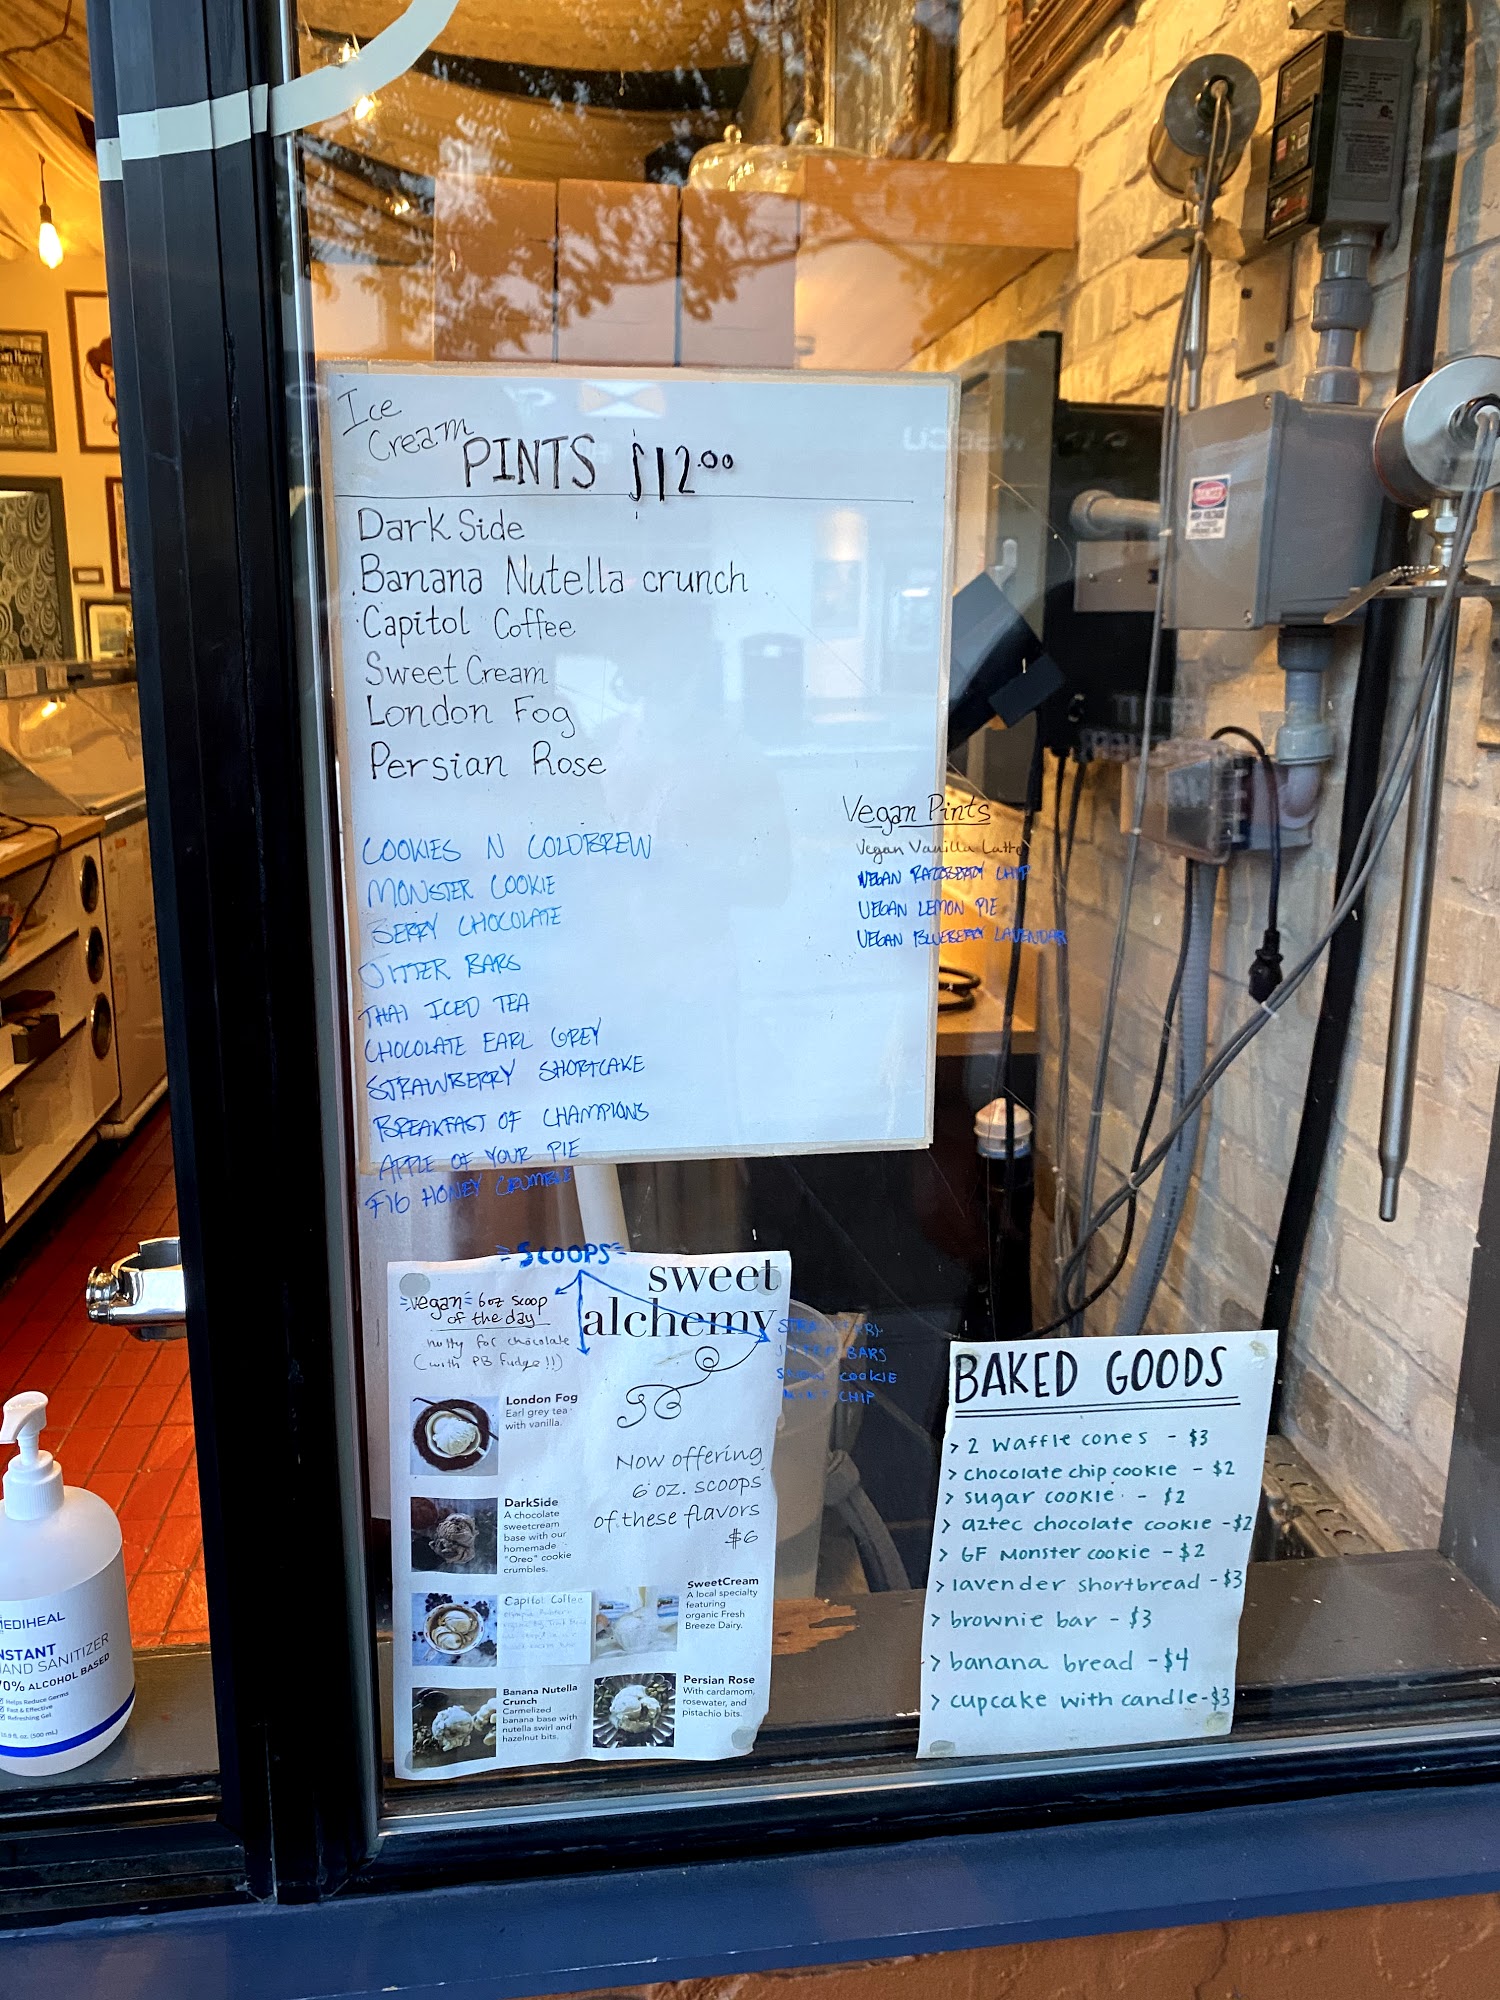 Ice
Cream
PINTS $12.00
Dark Side
Banana Nutella crunch
Capitol Coffee
Sweet Cream
London Fog
Persian Rose
COOKIES N COLDBREW
MONSTER COOKIE
BERRY CHOCOLATE
JITTER BARS
THAI ICED TEA
CHOCOLATE EARL GREY
STRAWBERRY SHORTCAKE
BREAKFAST OF CHAMPIONS
APPLE OF YOUR PIE
FIG HONEY CRUMBLE
Vegan Pints
Vegan Vanilla Latte
VEGAN RAZBERRY CHIP
VEGAN LEMON PIE
VEGAN BLUEBERRY LAVENDAR
SCOOPS
vegan 6oz scoop
of the day
nutty for chocolate
(with PB Fudge!!)
sweet
alchemy
STRAWBERRY
JITTER BARS
COOKIE
MINT CHIP
London Fog
Earl grey tea
with vanilla.
Now offering
6 oz. scoops
of these flavors
$6
DarkSide
A chocolate
sweetcream
base with our
homemade
"Oreo" cookie
crumbles.
Capitol Coffee
SweetCream
A local specialty
featuring
organic Fresh
Breeze Dairy.
Banana Nutella
Crunch
Carmelized
banana base with
nutella swirl and
hazelnut bits.
Persian Rose
With cardamom,
rosewater, and
pistachio bits.
BAKED GOODS
> 2 waffle cones - $3
> chocolate chip cookie - $2
> sugar cookie - $2
> aztec chocolate cookie - $2
> GF Monster cookie - $2
> lavender shortbread - $3
> brownie bar - $3
> banana bread - $4
> cupcake with candle - $3
MEDIHEAL
INSTANT
HAND SANITIZER
70% ALCOHOL BASED
Helps Reduce Germs
Fast & Effective
Refreshing Gel
(500 mL)